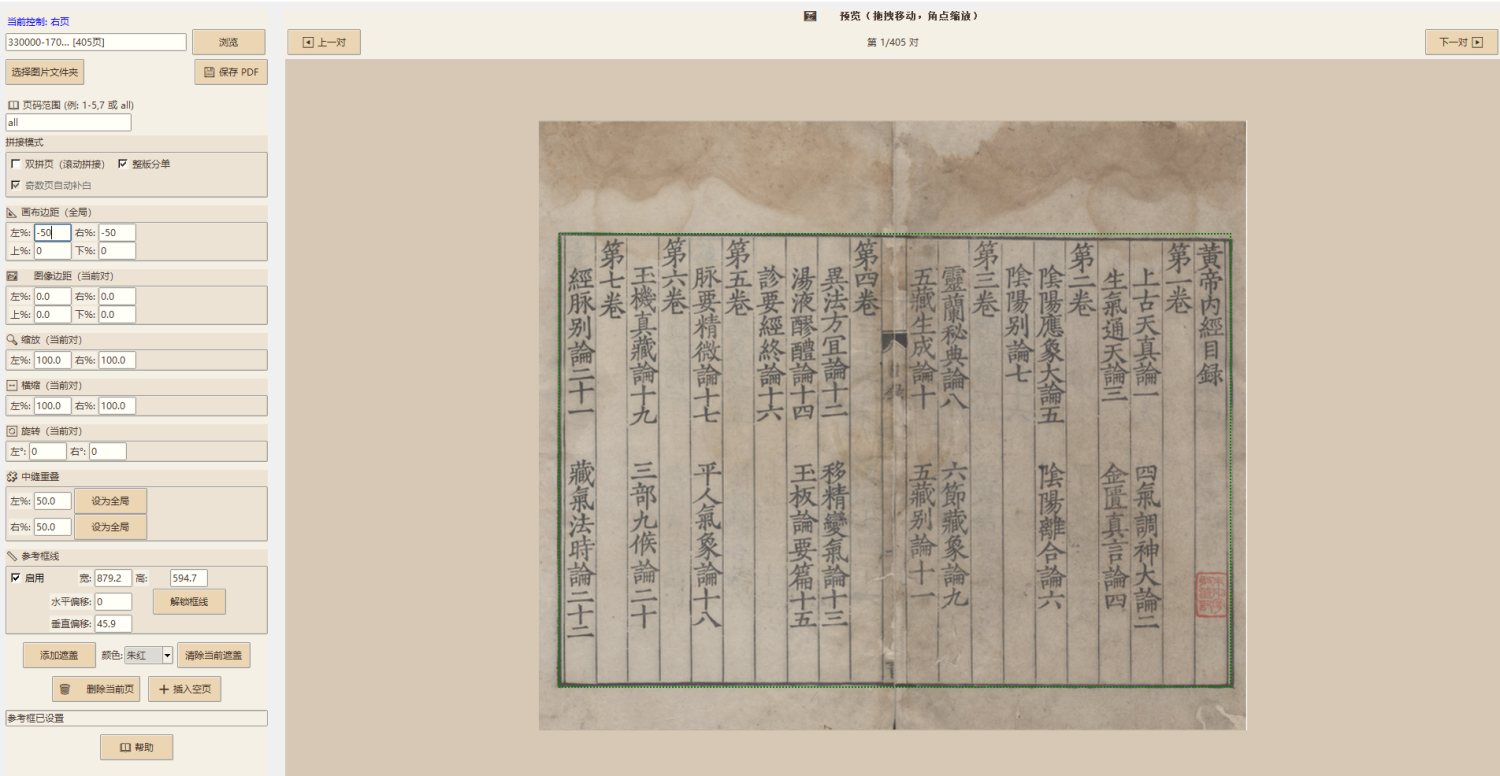 当前控制: 右页
330000-170... [405页]
浏览
选择图片文件夹
保存 PDF
页码范围 (例: 1-5,7 或 all)
all
拼接模式
双拼页（滚动拼接） 整版分单
奇数页自动补白
画布边距（全局）
左%: -50 右%: -50
上%: 0 下%: 0
图像边距（当前对）
左%: 0.0 右%: 0.0
上%: 0.0 下%: 0.0
缩放（当前对）
左%: 100.0 右%: 100.0
横缩（当前对）
左%: 100.0 右%: 100.0
旋转（当前对）
左°: 0 右°: 0
中缝重叠
左%: 50.0 设为全局
右%: 50.0 设为全局
参考框线
启用 宽: 879.2 高: 594.7
水平偏移: 0 解锁框线
垂直偏移: 45.9
添加遮盖 颜色: 朱红 清除当前遮盖
删除当前页 插入空页
参考框已设置
帮助
预览（拖拽移动，角点缩放）
上一对
第 1/405 对
下一对
黄帝内經目録
第一卷
上古天真論一 四氣調神大論二
生氣通天論三 金匱真言論四
第二卷
陰陽應象大論五 陰陽離合論六
陰陽別論七
第三卷
靈蘭秘典論八 六節藏象論九
五藏生成論十 五藏别論十一
第四卷
異法方冝論十二 移精變氣論十三
湯液醪醴論十四 玉板論要篇十五
診要經終論十六
第五卷
脉要精微論十七 平人氣象論十八
第六卷
玉機真藏論十九 三部九候論二十
第七卷
經脉别論二十一 藏氣法時論二十二